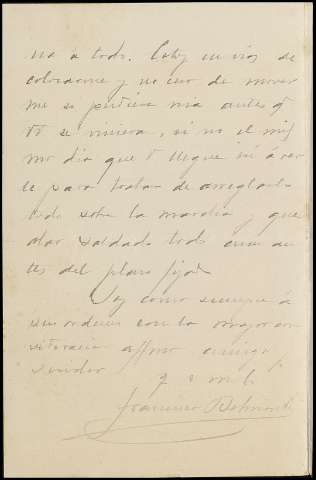 na á todo. Estoy en vias de
colocarme y no creo de mover
me se pudiera ma antes q
V se viniera, si no el mis
mo dia que V llegue iré á ver
le para tratar de arreglarlo
todo sobre la marcha y que
dar saldado todo cuan an
tes del plazo fijado
Soy como siempre á
sus ordenes con la mayor con
sideracion affmo amigo
servidor
q s m b
Francisco